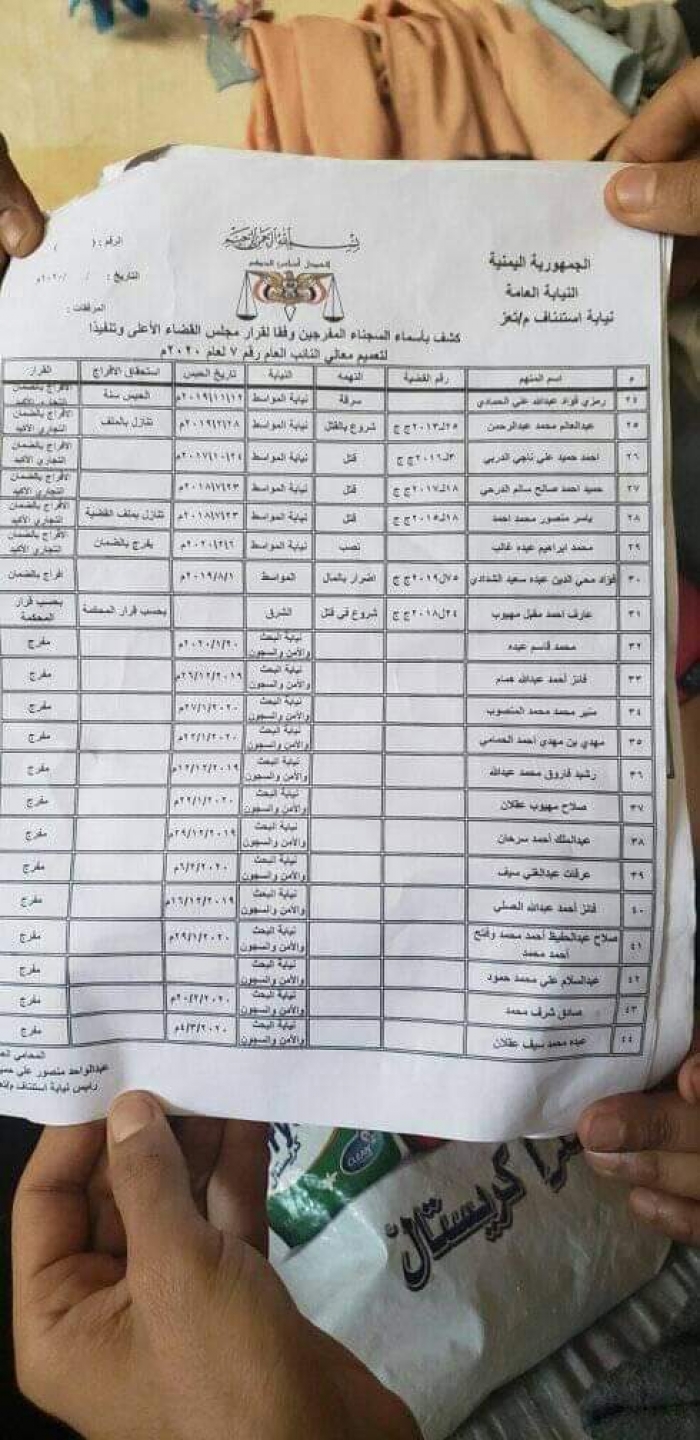 الجمهورية اليمنية
النيابة العامة
نيابة استئناف م/تعز
بسم الله الرحمن الرحيم
العدل أساس الحكم
الرقم: ( )
التاريخ: / / ٢٠٢٠م
المرفقات:
كشف بأسماء السجناء المفرجين وفقا لقرار مجلس القضاء الأعلى وتنفيذا
لتعميم معالي النائب العام رقم ٧ لعام ٢٠٢٠م
م اسم المتهم رقم القضية التهمه النيابة تاريخ الحبس استحقاق الافراج القرار
٢٤ رمزي فواد عبدالله علي الحمادي سرقة نيابة المواسط ٢٠١٩/١١/١٢م الحبس سنة الافراج بالضمان التجاري الأكيد
٢٥ عبدالعالم محمد عبدالرحمن ٢٥لـ٢٠١٣ج ج شروع بالقتل نيابة المواسط ٢٠١٩/٢/٢٨م تنازل بالملف الافراج بالضمان التجاري الأكيد
٢٦ احمد حميد علي ناجي الدربي ٣لـ٢٠١٦ج ج قتل نيابة المواسط ٢٠١٧/١٠/٢٤م الافراج بالضمان التجاري الأكيد
٢٧ حميد احمد صالح سالم الدرحي ١٨لـ٢٠١٧ج ج قتل نيابة المواسط ٢٠١٨/٧/٢٣م الافراج بالضمان التجاري الأكيد
٢٨ ياسر منصور محمد احمد ١٨لـ٢٠١٥ج ج قتل نيابة المواسط ٢٠١٨/٧/٢٣م تنازل بملف القضية الافراج بالضمان التجاري الأكيد
٢٩ محمد ابراهيم عبده غالب نصب نيابة المواسط يفرج بالضمان الافراج بالضمان التجاري الأكيد
٣٠ فؤاد محي الدين عبده سعيد الشدادي ٧٥لـ٢٠١٩ج ج اضرار بالمال المواسط ٢٠١٩/٨/١م افراج بالضمان
٣١ عارف احمد مقبل مهيوب ٢٤لـ٢٠١٨ج ج شروع في قتل الشرق بحسب قرار المحكمة بحسب قرار المحكمة
٣٢ محمد قاسم عبده نيابة البحث والأمن والسجون ٢٠٢٠/١/٢٠م مفرج
٣٣ فائز أحمد عبدالله همام نيابة البحث والأمن والسجون ٢٦/١٢/٢٠١٩م مفرج
٣٤ منير محمد محمد المنصوب نيابة البحث والأمن والسجون ٢٧/١/٢٠٢٠م مفرج
٣٥ مهدي بن مهدي احمد الحمامي نيابة البحث والأمن والسجون ٢٢/١/٢٠٢٠م مفرج
٣٦ رشيد فاروق محمد عبدالله نيابة البحث والأمن والسجون ١٢/١٢/٢٠١٩م مفرج
٣٧ صلاح مهيوب عقلان نيابة البحث والأمن والسجون ٢٢/١/٢٠٢٠م مفرج
٣٨ عبدالملك أحمد سرحان نيابة البحث والأمن والسجون ٢٩/١٢/٢٠١٩م مفرج
٣٩ عرفات عبدالغني سيف نيابة البحث والأمن والسجون ٦/٢/٢٠٢٠م مفرج
٤٠ فائز أحمد عبدالله الصلي نيابة البحث والأمن والسجون ١٦/١٢/٢٠١٩م مفرج
٤١ صلاح عبدالحفيظ أحمد محمد وفتح أحمد محمد نيابة البحث والأمن والسجون ٢٩/١/٢٠٢٠م مفرج
٤٢ عبدالسلام علي محمد حمود نيابة البحث والأمن والسجون مفرج
٤٣ صادق شرف محمد نيابة البحث والأمن والسجون ٢٠/٢/٢٠٢٠م مفرج
٤٤ عبده محمد سيف عقلان نيابة البحث والأمن والسجون ٤/٣/٢٠٢٠م مفرج
المحامي
عبدالواحد منصور علي
رئيس نيابة استئناف م/تعز
CLEAN
كريستال